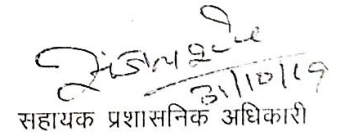 31/10/19
सहायक प्रशासनिक अधिकारी